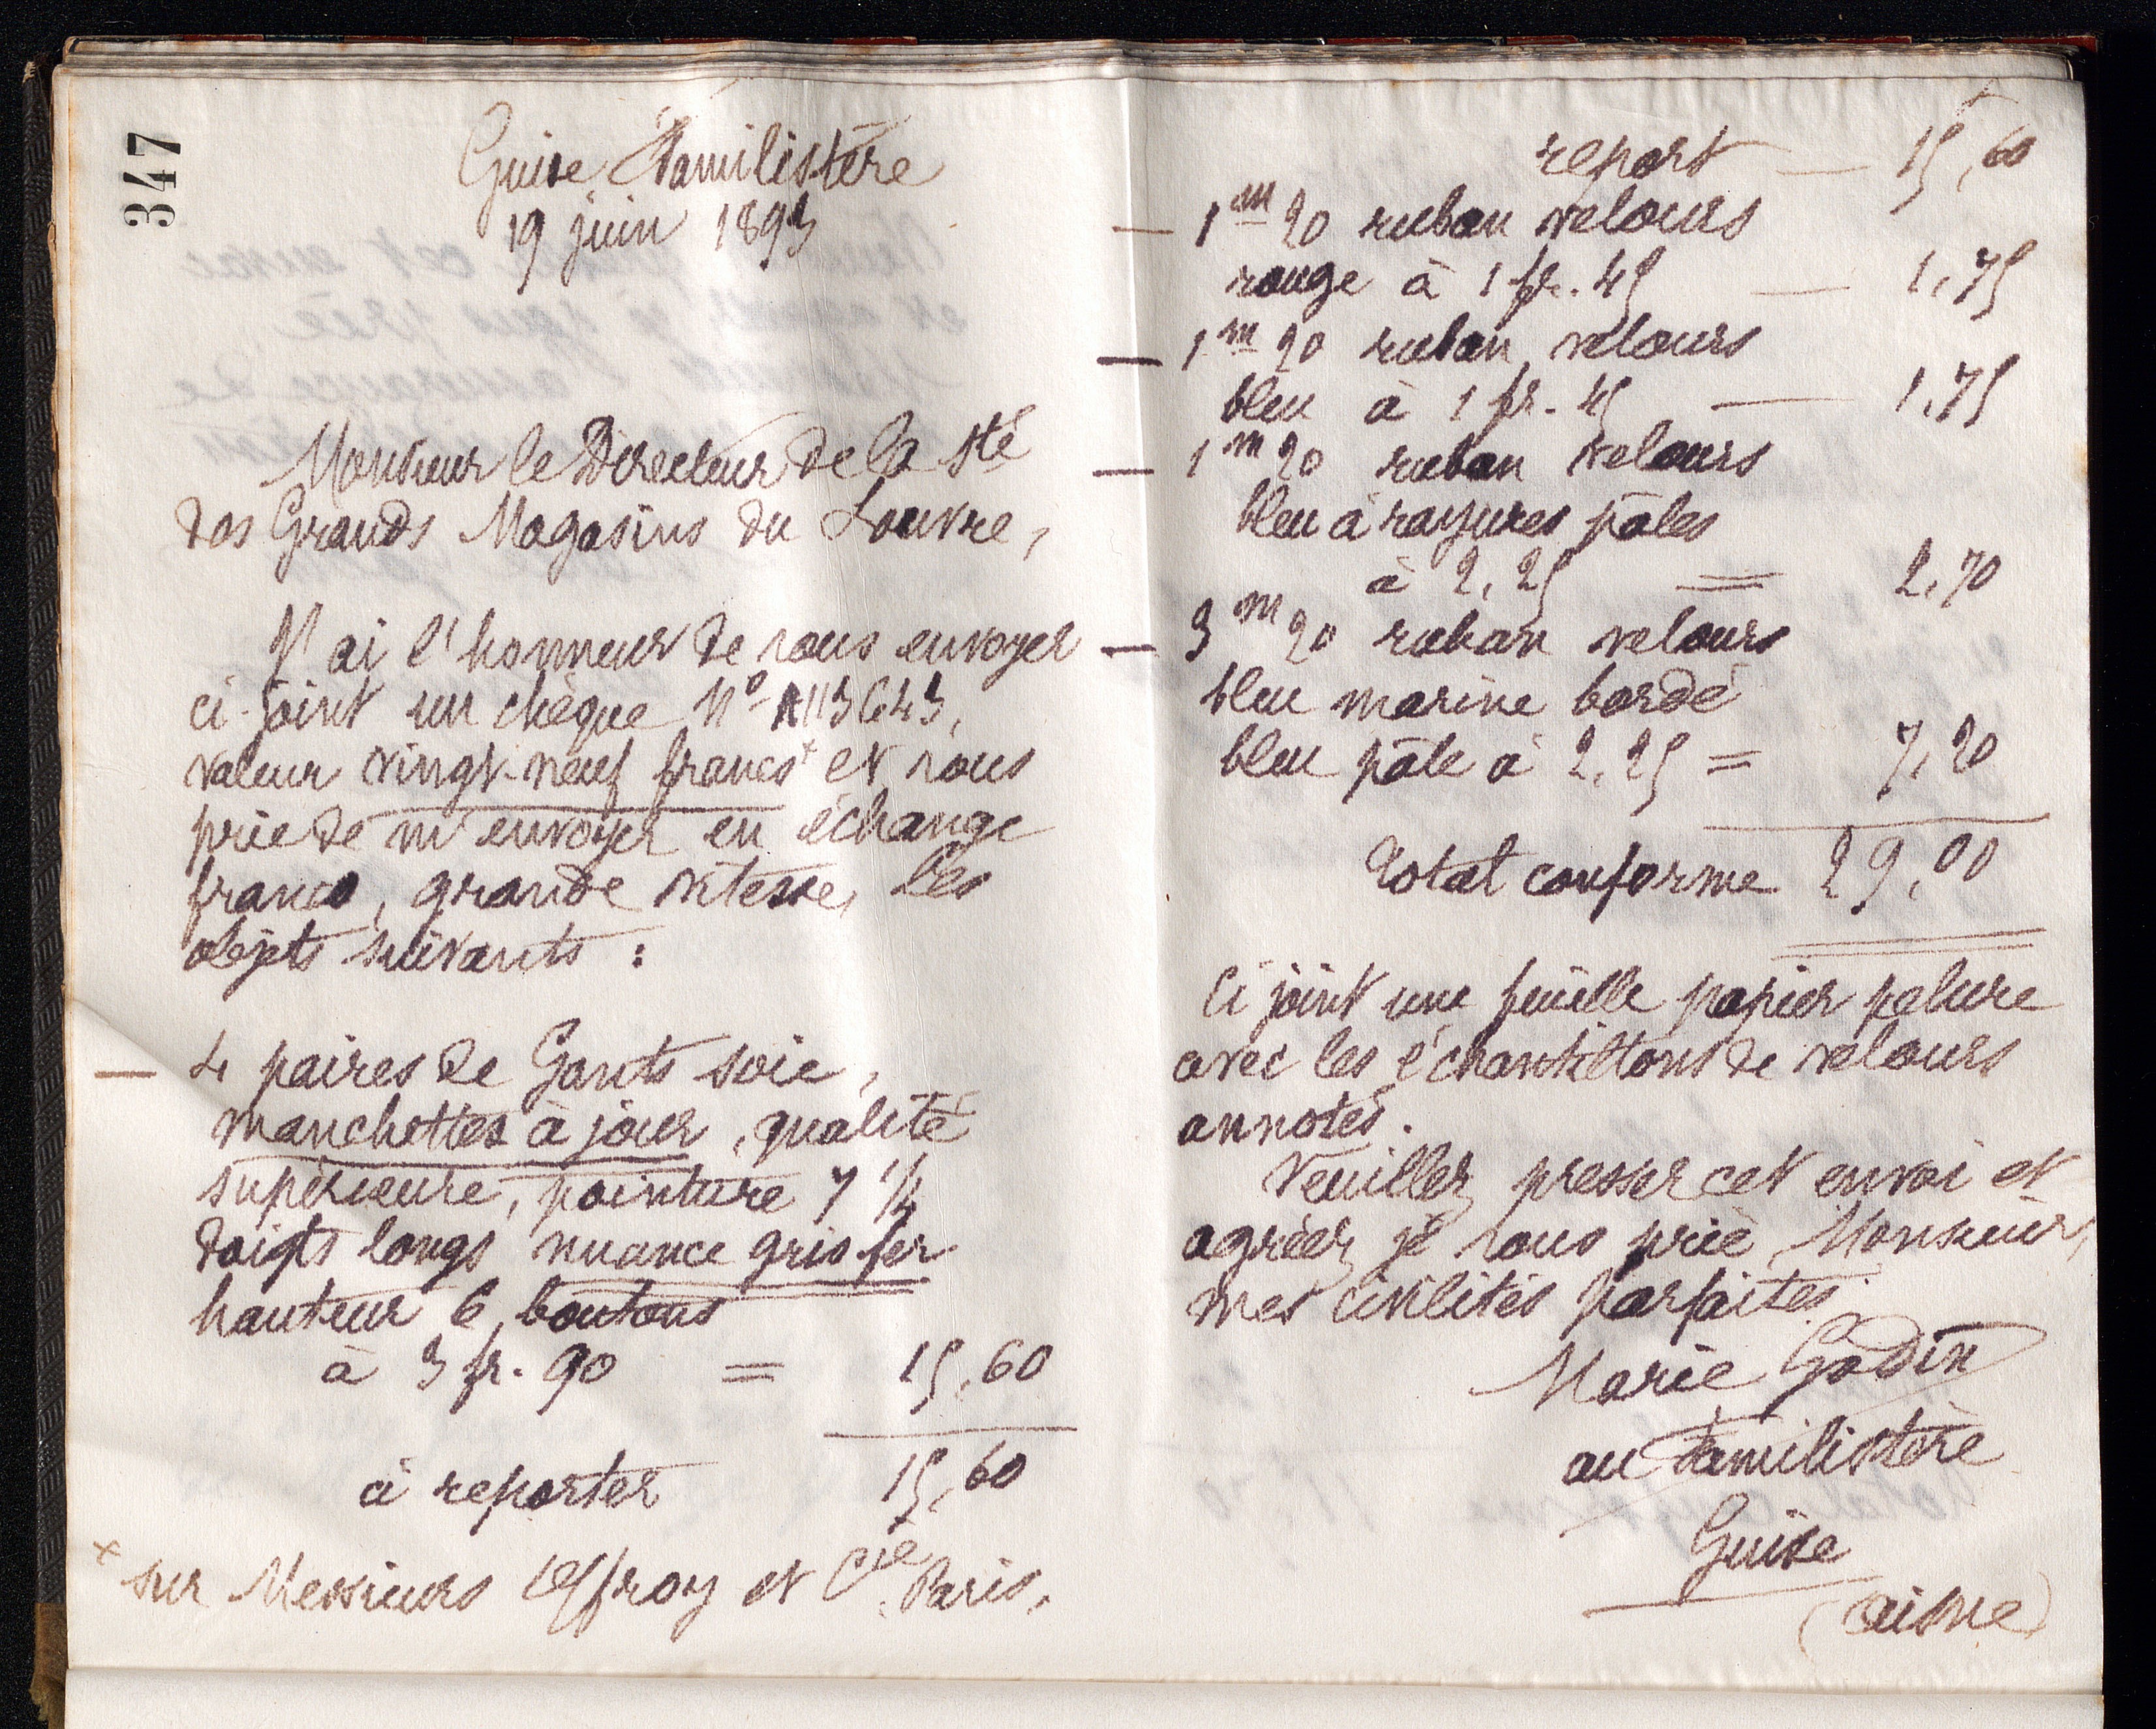 347
Guise, Familistère
19 juin 1893
Monsieur le Directeur de la Sté
des Grands Magasins du Louvre,
J'ai l'honneur de vous envoyer
ci-joint un chèque No 113643,
valeur vingt-neuf francs+ et vous
prie de m'envoyer en échange
franco, grande vitesse, les
objets suivants :
— 4 paires de Gants soie,
manchettes à jour, qualité
supérieure, pointure 7 1/4
doigts longs nuance gris fer
hauteur 6 boutons
à 3 fr. 90 = 15,60
à reporter 15,60
+ sur Messieurs Offroy et Cie Paris.
report — 15,60
— 1m 20 ruban velours
rouge à 1 fr. 45 — 1,75
— 1m 20 ruban velours
bleu à 1 fr. 45 — 1,75
— 1m 20 ruban velours
bleu à rayures pâles
à 2,25 = 2,70
— 3m 20 ruban velours
bleu marine bordé
bleu pâle à 2,25 = 7,20
Total conforme 29,00
Ci joint une feuille papier pelure
avec les échantillons de velours
annotés.
Veuillez presser cet envoi et
agréer, je vous prie, Monsieur,
mes civilités parfaites.
Marie Godin
au Familistère
Guise
(Aisne)